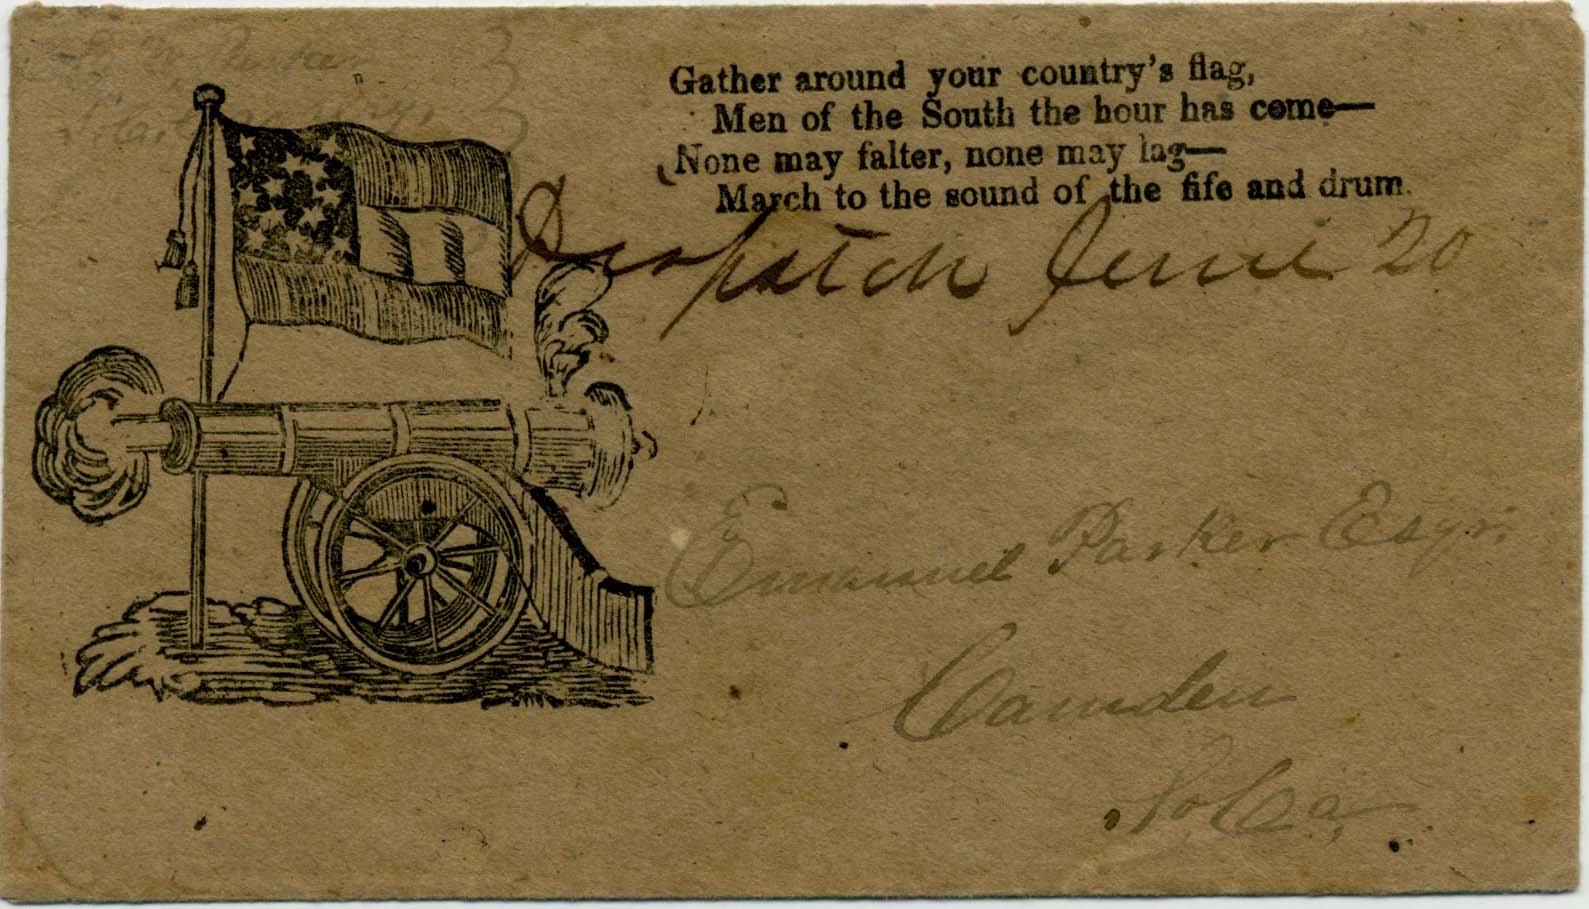 Gather around your country's flag,
Men of the South the hour has come—
None may falter, none may lag—
March to the sound of the fife and drum.
Dispatch June 20
Emanuel Parker Esqr.
Camden
No Ca,